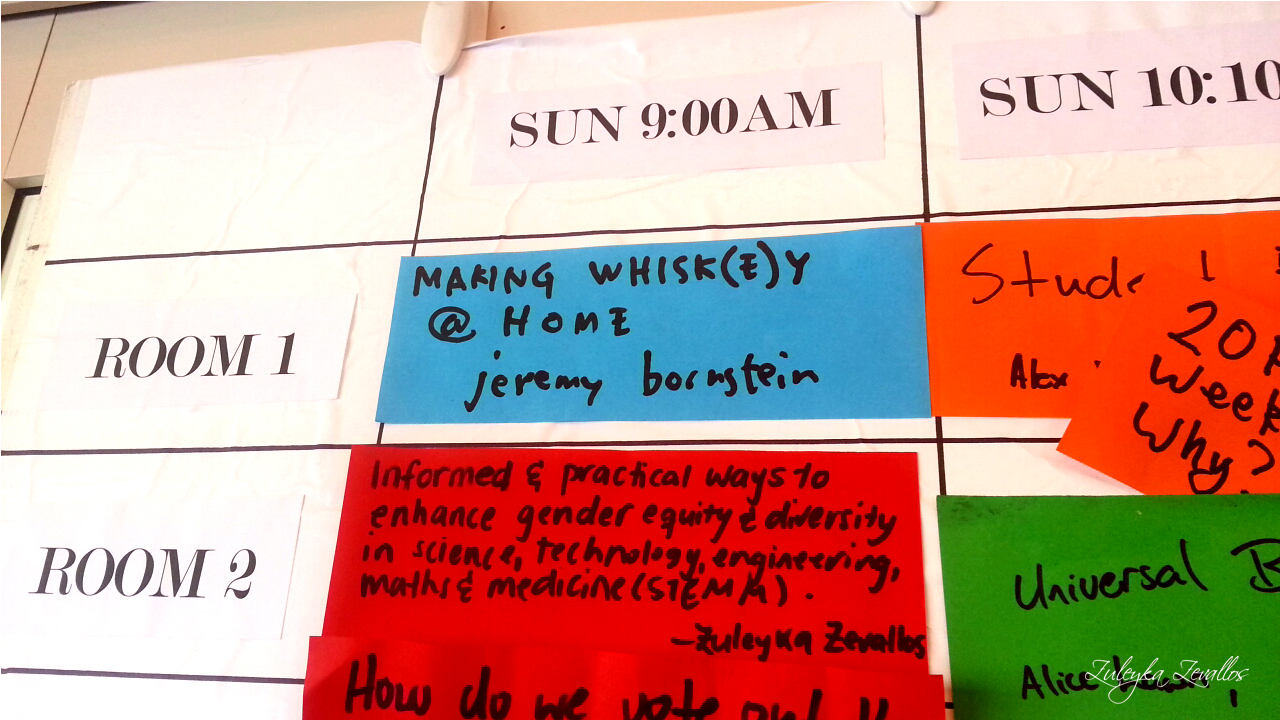 SUN 9:00AM
SUN 10:10
ROOM 1
MAKING WHISK(E)Y
@ HOME
jeremy bornstein
Stude
Alex
20
Week
Why?
ROOM 2
Informed & practical ways to
enhance gender equity & diversity
in science, technology, engineering,
maths & medicine (STEMM).
-Zuleyka Zevallos
Universal B
Alice
How do we vote out
Zuleyka Zevallos